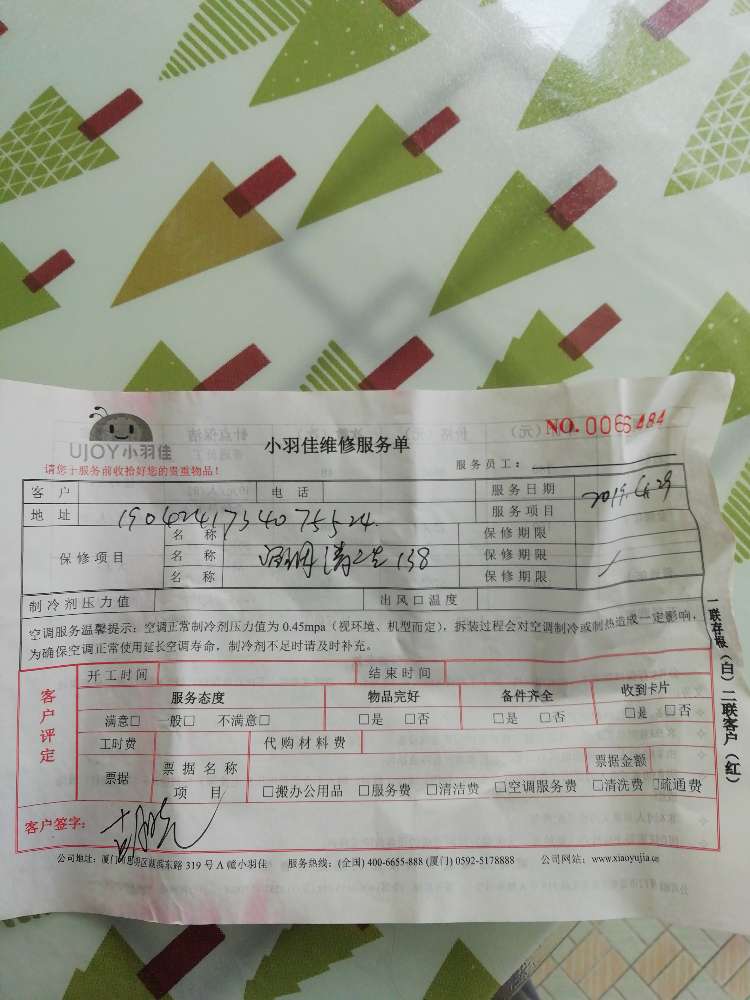 UJOY小羽佳
小羽佳维修服务单
NO. 0066484
请您于服务前收拾好您的贵重物品!
服务员工:
客户 电话 服务日期 2019.4.29
地址 1904241734075524 服务项目
保修项目 名称 保修期限
名称 清洗 138 保修期限
名称 保修期限
制冷剂压力值 出风口温度
空调服务温馨提示:空调正常制冷剂压力值为 0.45mpa(视环境、机型而定),拆装过程会对空调制冷或制热造成一定影响,
为确保空调正常使用延长空调寿命,制冷剂不足时请及时补充。
客户评定 开工时间 结束时间
服务态度 物品完好 备件齐全 收到卡片
满意□ 一般□ 不满意□ □是 □否 □是 □否 □是 □否
工时费 代购材料费
票据 票据名称 票据金额
项目 □搬办公用品 □服务费 □清洁费 □空调服务费 □清洗费 □疏通费
客户签字:
公司地址:厦门思明区莲滨东路 319 号 A 幢小羽佳 服务热线:(全国) 400-6655-888 (厦门) 0592-5178888 公司网站:www.xiaoyujia.cn
一联存根(白)二联客户(红)